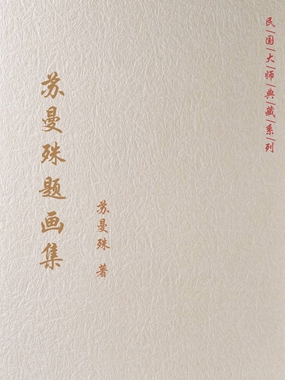 民国大师典藏系列
苏曼殊题画集
苏曼殊 著